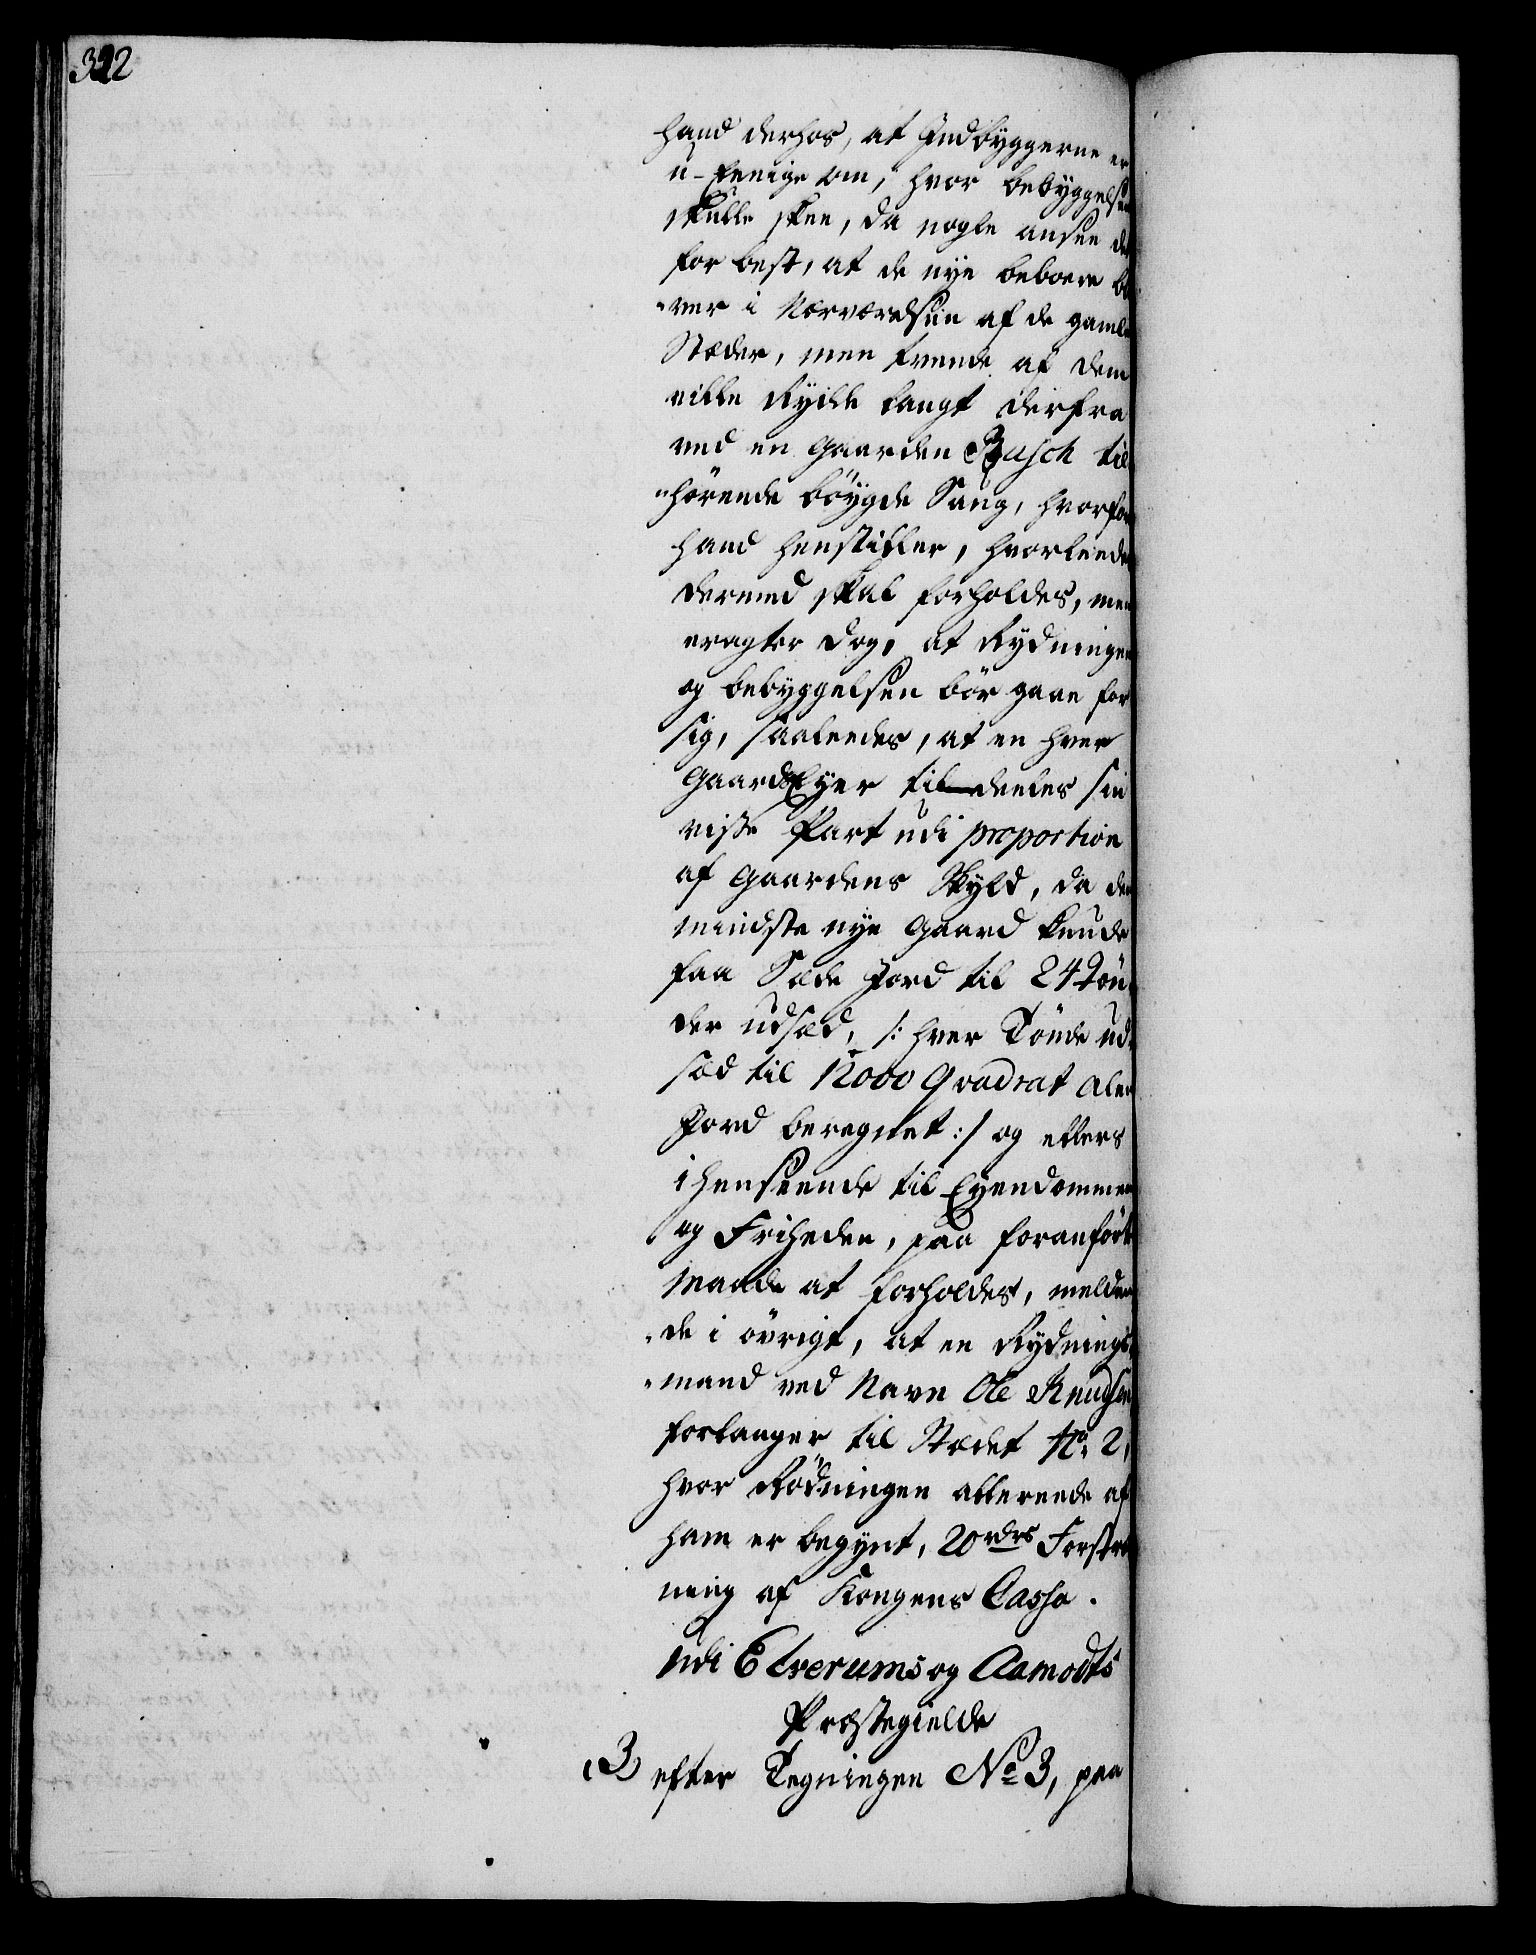 322
hand derhos, at Indbyggerne er
u-Eenige om, hvor bebyggelsen
skulle skee, da nogle ansee det
for best, at de nye beboere bli
„ver i Nærværelsen af de gamle
Stæder, men trende af dem
ville Rydde langt derfra
ved en Gaarden Rasch til
„hörende böygde Saug, hvorfor
hand henstiller, hvorleedes
dermed skal forholdes, men
eragter dog, at Rydningen
og bebyggelsen bör gaae for
sig, saaleedes, at en hver
Gaards Eyer tildeeles sin
visse Part udi proportion
af Gaardens Skyld, da den
mindste nye Gaard kunde
faa Sæde Jord til 24 Tön
der udsæd, /: hver Tönde ud
sæd til 12000 Qvadrat Alen
Jord beregnet :/ og ellers
i henseende til Eyendommen
og Friheden, paa foranförte
Maade at forholdes, melden
„de i övrigt, at en Rydnings
„mand ved Navn Ole Knudsen
forlanger til Stædet No 2,
hvor Rödningen allereede af
ham er begynt, 20 rdrs Forstræk
ning af Kongens Cassa.
Udi Elverums og Aamodts
Præstegielde
3) efter Tegningen No 3, paa